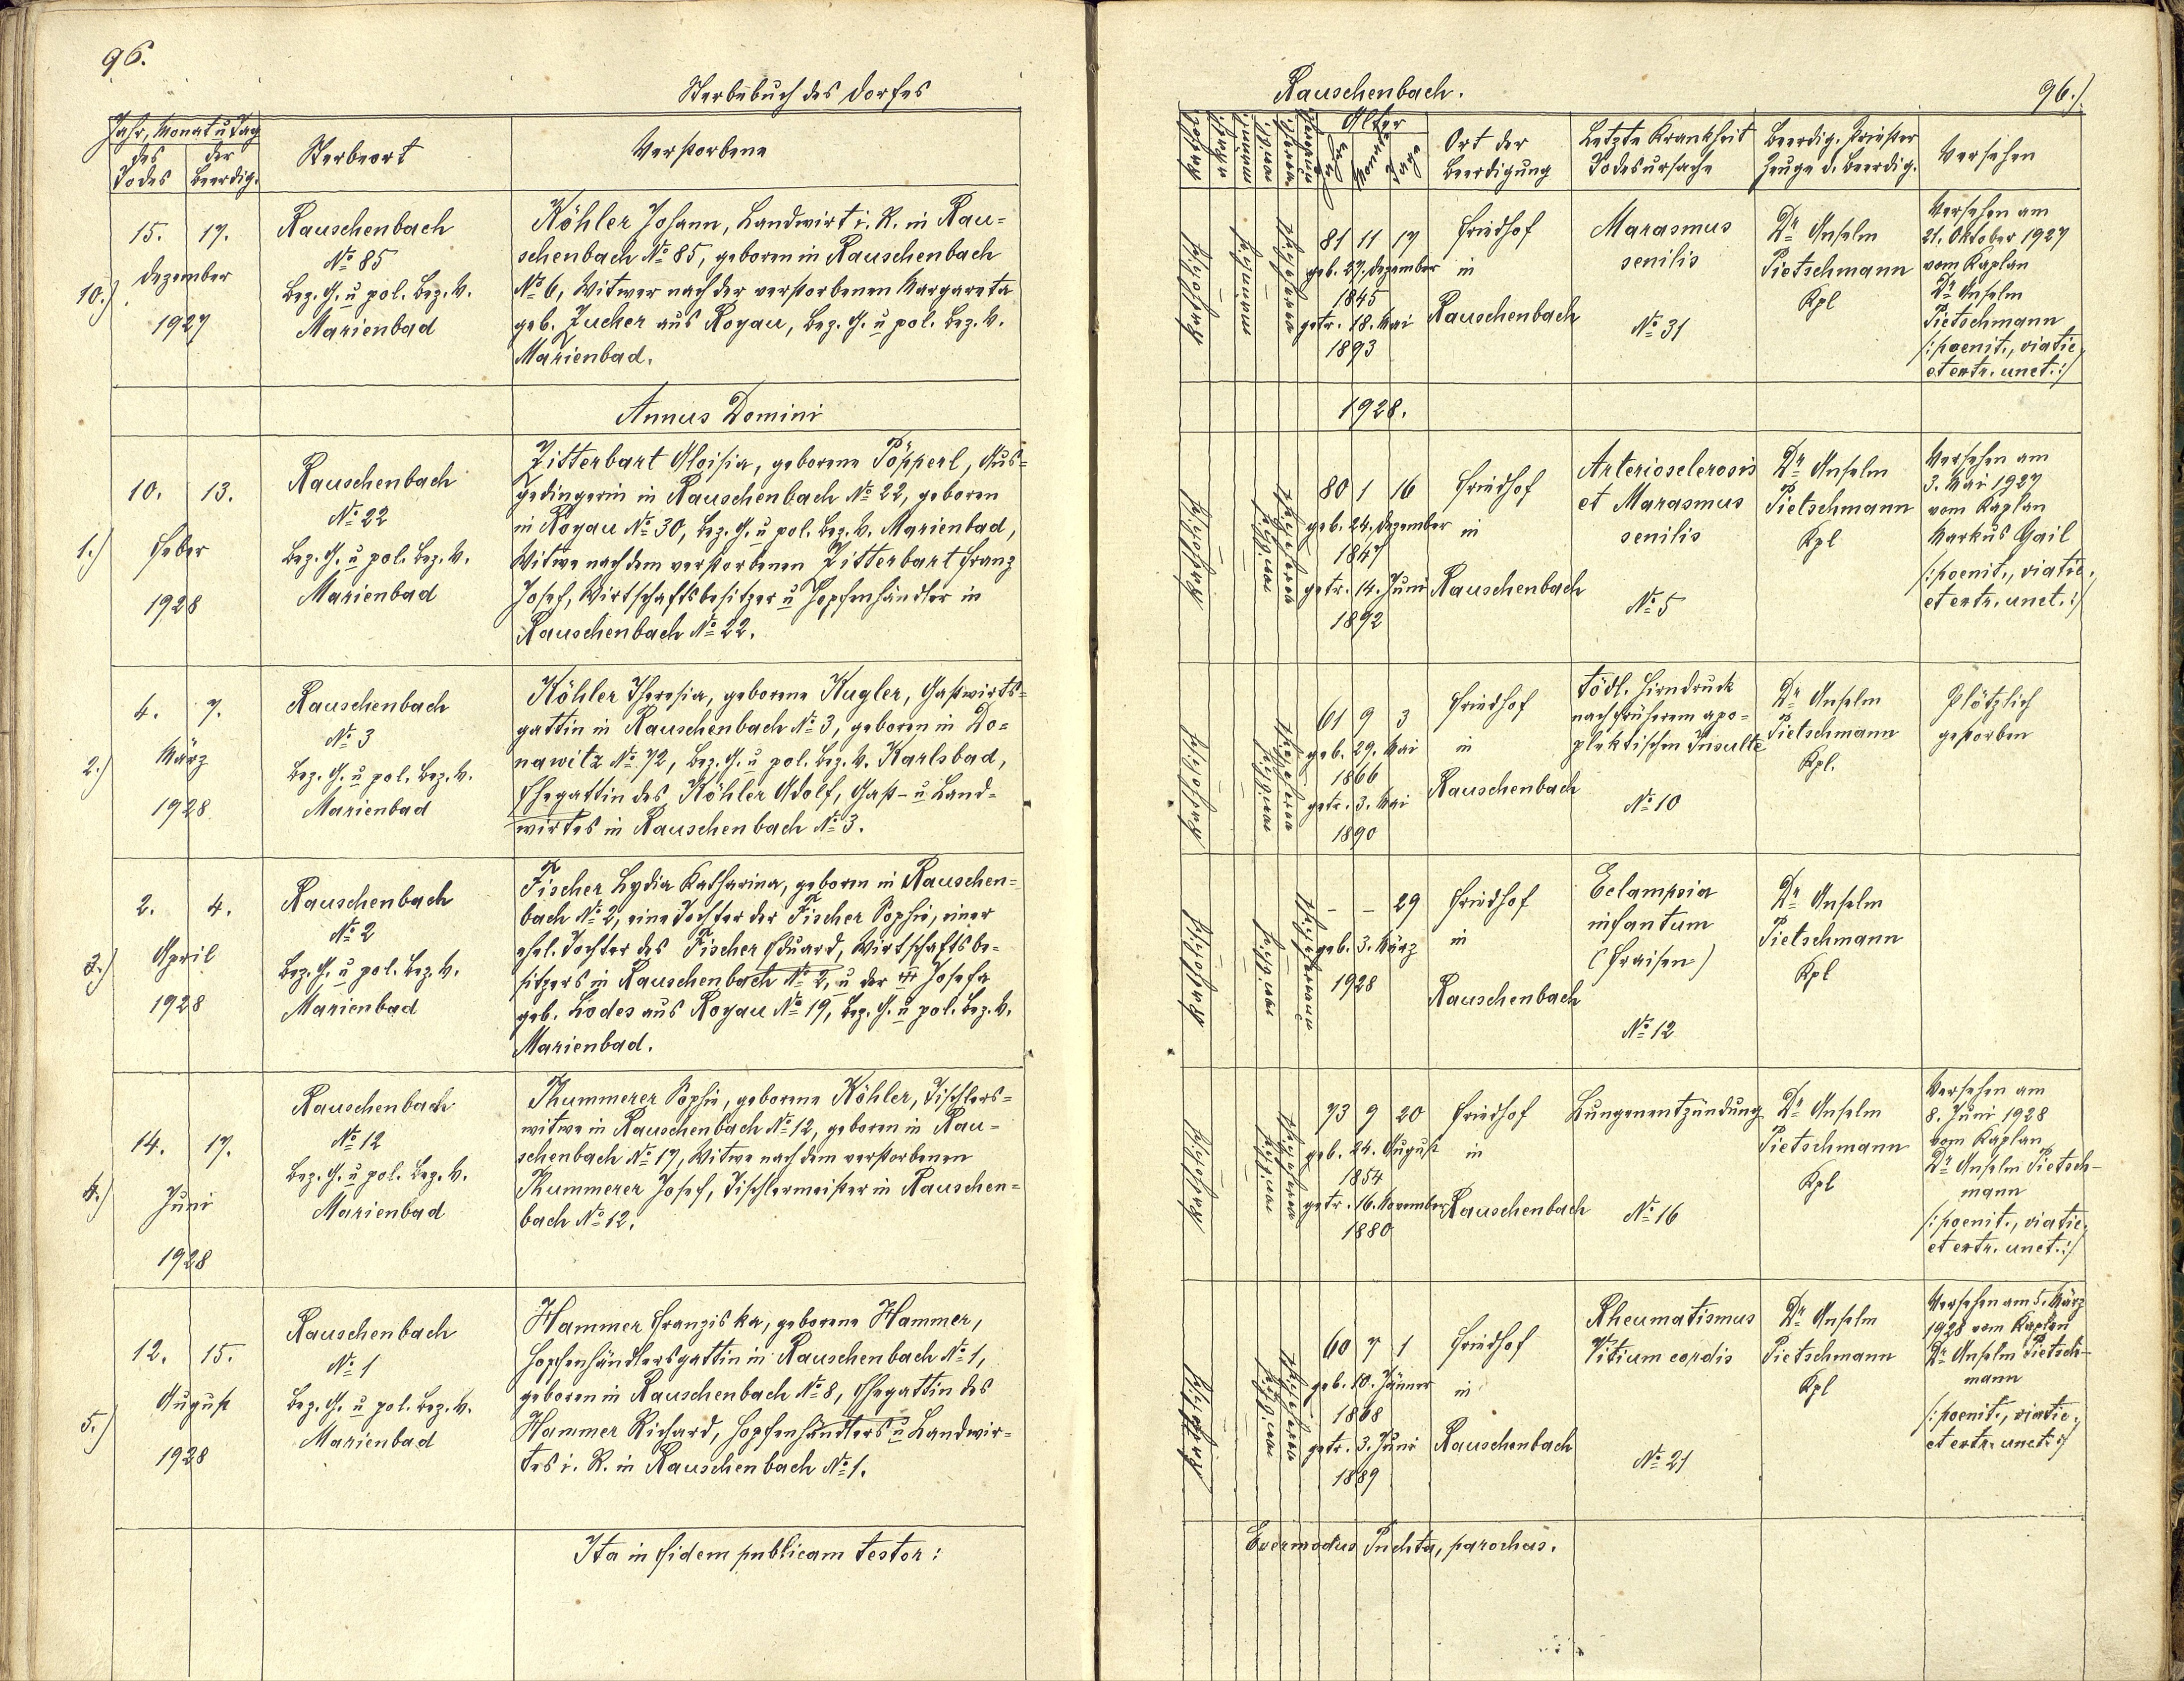 96.
Sterbebuch des Dorfes
Jahr, Monat u Tag
des Todes
der Beerdig.
Sterbeort
Verstorbene
10.)
15. 17.
Dezember
1927
Rauschenbach
No 85
Bez. G. u pol. Bez. V.
Marienbad
Köhler Johann, Landwirt i. R. in Rau=
schenbach No 85, geboren in Rauschenbach
No 6, Witwer nach der verstorbenen Margareta
geb. Zucher aus Rogau, Bez. G. u pol. Bez. V.
Marienbad.
Annus Domini
1.)
10. 13.
Feber
1928
Rauschenbach
No 22
Bez. G. u pol. Bez. V.
Marienbad
Zitterbart Aloisia, geborene Pöpperl, Aus=
gedingerin in Rauschenbach No 22, geboren
in Rogau No 30, Bez. G. u pol. Bez. V. Marienbad,
Witwe nach dem verstorbenen Zitterbart Franz
Josef, Wirtschaftsbesitzer u Hopfenhändler in
Rauschenbach No 22.
2.)
4. 7.
März
1928
Rauschenbach
No 3
Bez. G. u pol. Bez. V.
Marienbad
Köhler Theresia, geborene Kugler, Gastwirts=
gattin in Rauschenbach No 3, geboren in Do=
nawitz No 72, Bez. G. u pol. Bez. V. Karlsbad,
Ehegattin des Köhler Adolf, Gast- u Land=
wirtes in Rauschenbach No 3.
3.)
2. 4.
April
1928
Rauschenbach
No 2
Bez. G. u pol. Bez. V.
Marienbad
Fischer Lydia Katharina, geboren in Rauschen=
bach No 2, eine Tochter der Fischer Sophie, einer
ehel. Tochter des Fischer Eduard, Wirtschaftsbe=
sitzers in Rauschenbach No 2, u der Josefa
geb. Lodes aus Rogau No 19, Bez. G. u pol. Bez. V.
Marienbad.
4.)
14. 17.
Juni
1928
Rauschenbach
No 12
Bez. G. u pol. Bez. V.
Marienbad
Thummerer Sophie, geborene Köhler, Tischlers=
witwe in Rauschenbach No 12, geboren in Rau=
schenbach No 17, Witwe nach dem verstorbenen
Thummerer Josef, Tischlermeister in Rauschen=
bach No 12.
5.)
12. 15.
August
1928
Rauschenbach
No 1
Bez. G. u pol. Bez. V.
Marienbad
Hammer Franziska, geborene Hammer,
Hopfenhändlersgattin in Rauschenbach No 1,
geboren in Rauschenbach No 8, Ehegattin des
Hammer Richard, Hopfenhändlers u Landwir=
tes i. R. in Rauschenbach No 1.
Ita in fidem publicam testor:
Rauschenbach.
96./
Alter
Ort der Beerdigung
Letzte Krankheit Todesursache
Beerdig. Priester Zeuge d. Beerdig.
Versehen
katholisch
männlich
81 11 17
geb. 27. Dezember
1845
getr. 18. Mai
1893
Friedhof
in
Rauschenbach
Marasmus
senilis
No 31
Dr Anselm
Pietschmann
Kpl
Versehen am
21. Oktober 1927
vom Kaplan
Dr Anselm
Pietschmann
/:poenit., viatic.
et extr. unct.:/
1928.
katholisch
weiblich
80 1 16
geb. 24. Dezember
1847
getr. 14. Juni
1892
Friedhof
in
Rauschenbach
Arteriosclerosis
et Marasmus
senilis
No 5
Dr Anselm
Pietschmann
Kpl
Versehen am
3. Mai 1927
vom Kaplan
Markus Gail
/:poenit., viatic.
et extr. unct.:/
katholisch
weiblich
61 9 3
geb. 29. Mai
1866
getr. 3. Mai
1890
Friedhof
in
Rauschenbach
Tödl. Hirndruck
nach früherem apo=
plektischen Insulte
No 10
Dr Anselm
Pietschmann
Kpl.
Plötzlich
gestorben
katholisch
weiblich
- - 29
geb. 3. März
1928
Friedhof
in
Rauschenbach
Eclampsia
infantum
(Fraisen)
No 12
Dr Anselm
Pietschmann
Kpl
katholisch
weiblich
73 9 20
geb. 24. August
1854
getr. 16. November
1880
Friedhof
in
Rauschenbach
Lungenentzündung
No 16
Dr Anselm
Pietschmann
Kpl
Versehen am
8. Juni 1928
vom Kaplan
Dr Anselm Pietsch-
mann
/:poenit., viatic.
et extr. unct.:/
katholisch
weiblich
60 7 1
geb. 10. Jänner
1868
getr. 3. Juni
1889
Friedhof
in
Rauschenbach
Rheumatismus
Vitium cordis
No 21
Dr Anselm
Pietschmann
Kpl
Versehen am 5. März
1928 vom Kaplan
Dr Anselm Pietsch-
mann
/:poenit., viatic.
et extr. unct.:/
Evermodus Puchta, parochus.